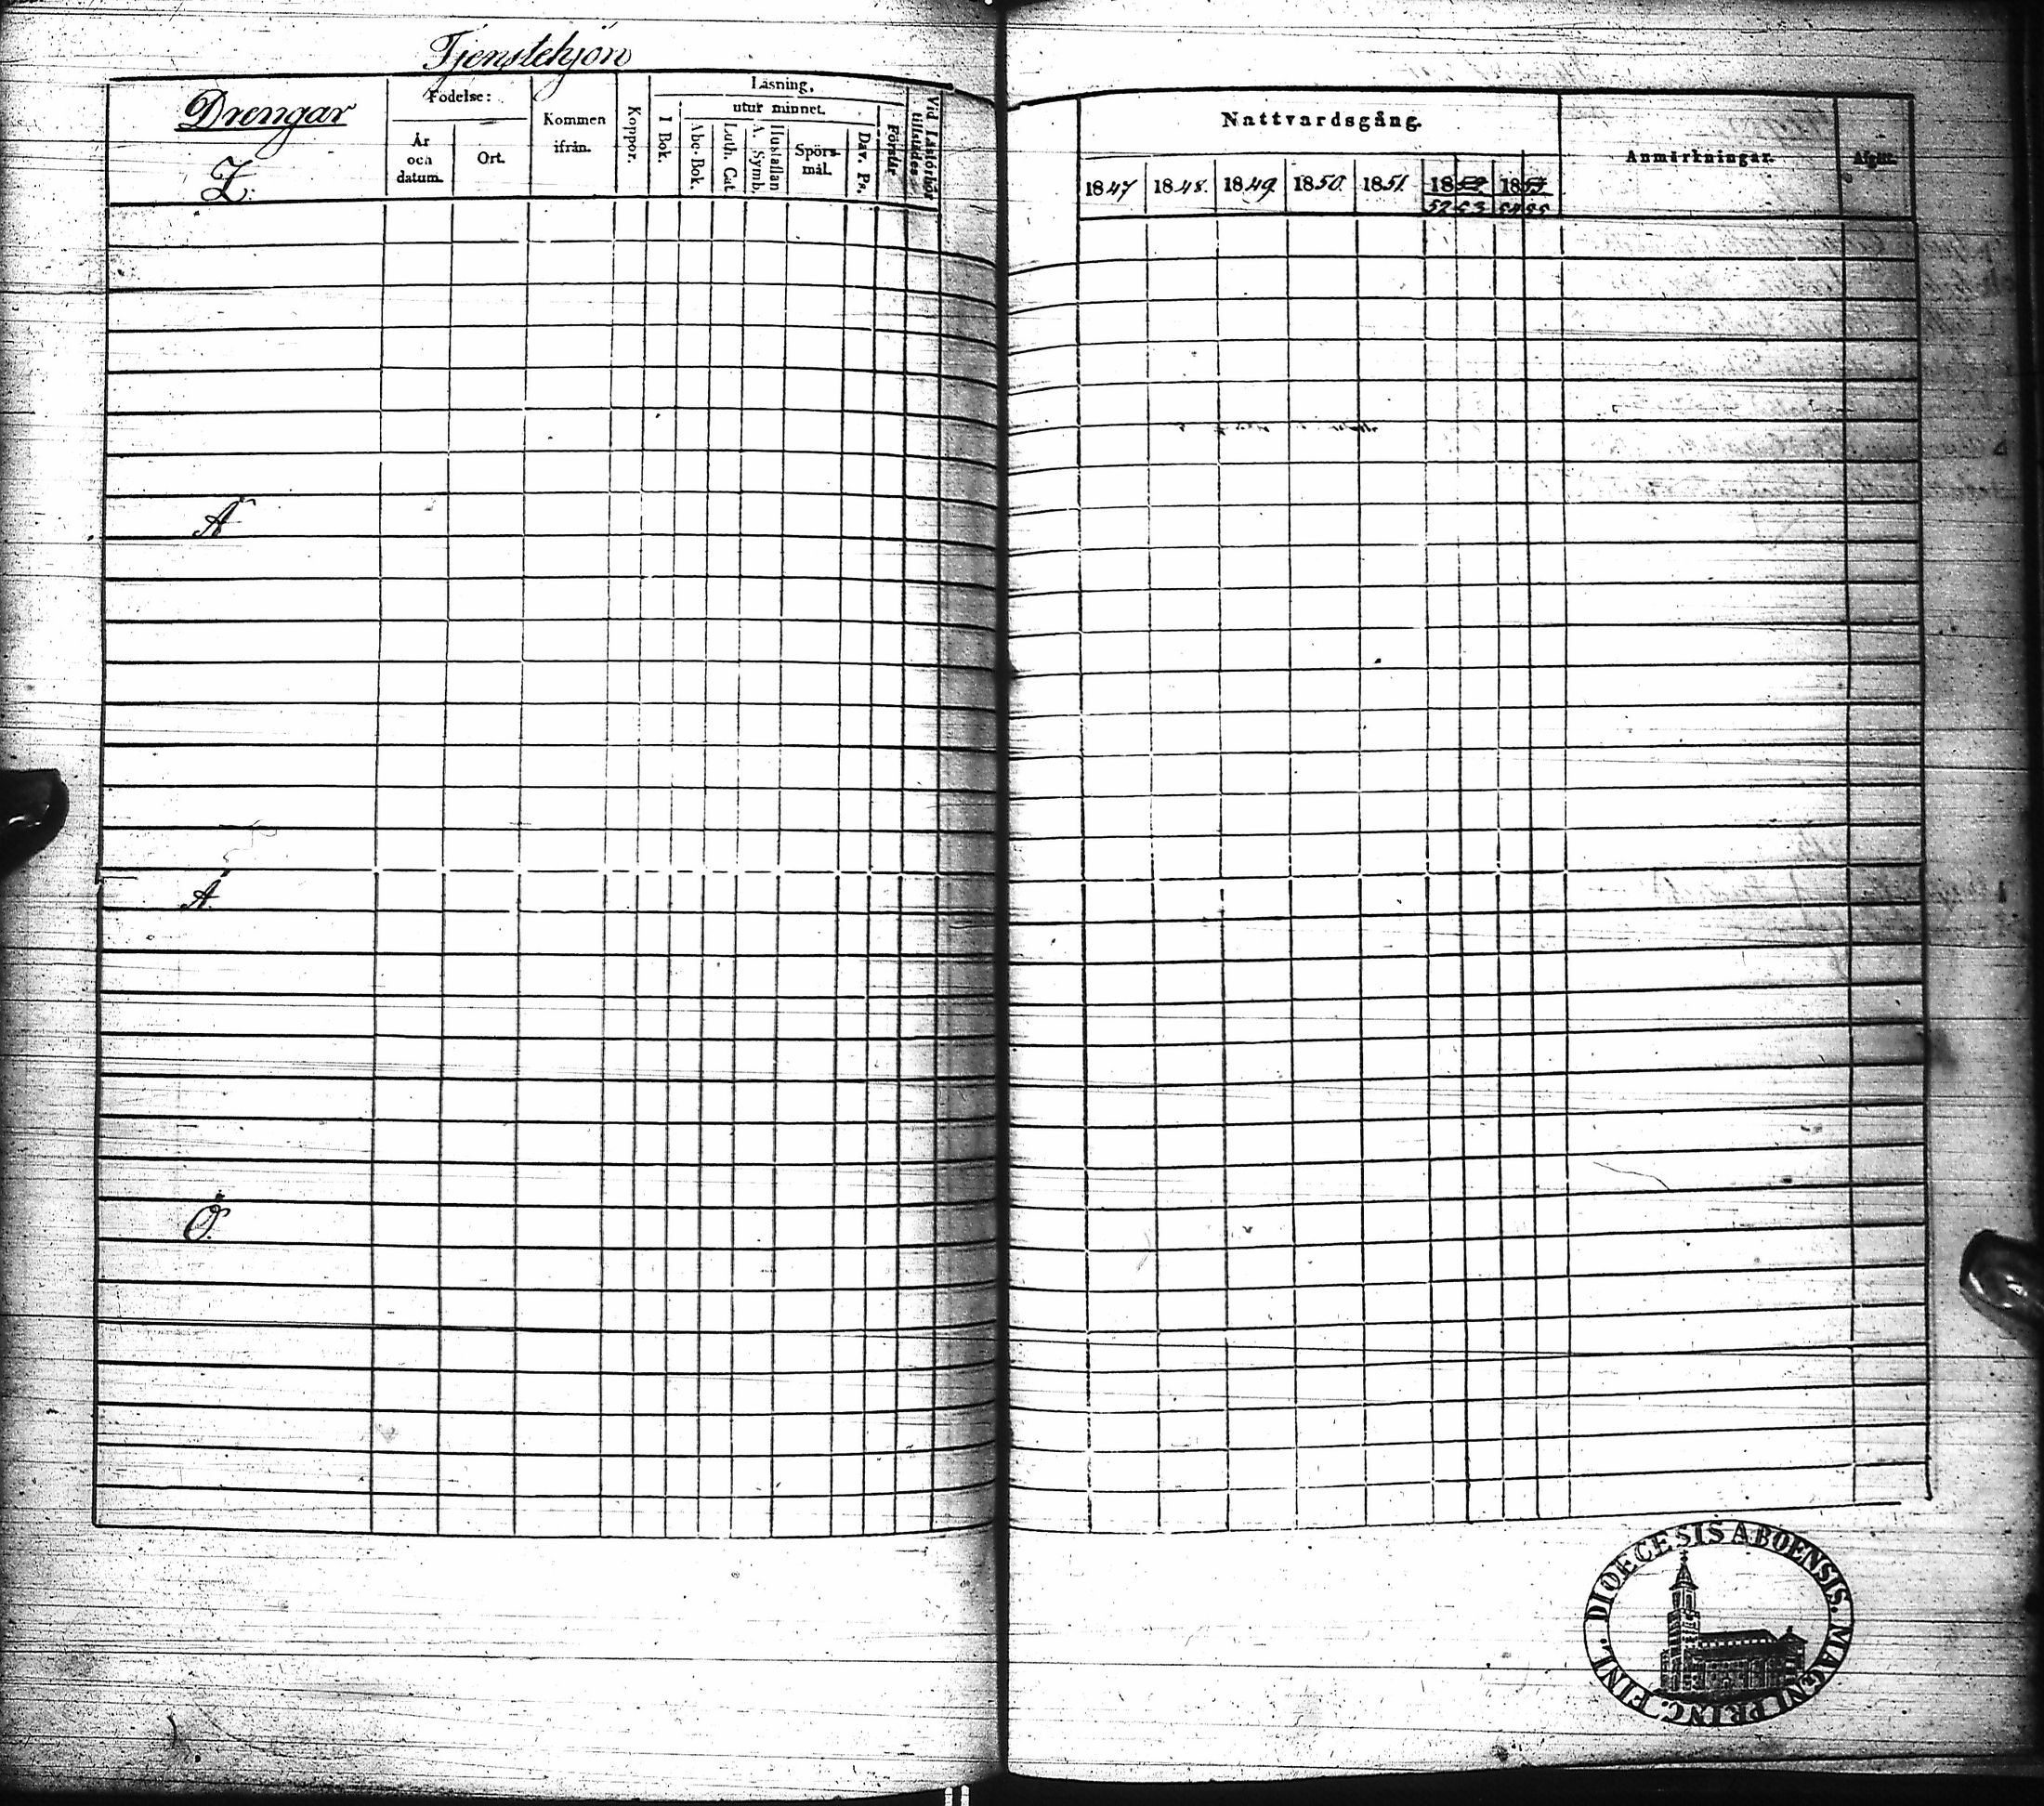 Tjenstehjon
Drengar
Z.
Födelse:
År
och
datum.
Ort.
Kommen
ifrån.
Koppor.
Läsning.
I Bok.
utur minnet.
Abc-Bok.
Luth. Cat.
A. Symb.
Hustaflan
Spörs-
mål.
Dav. Ps.
Förstår
Vid Läsförhör
tillstädes
Å
Ä
Ö.
Nattvardsgång.
1847 1848. 1849. 1850. 1851.
52 53 54 55
Anmärkningar.
Afgått.
DIOECESIS ABOENSIS. MAGNI PRINC. FINL.